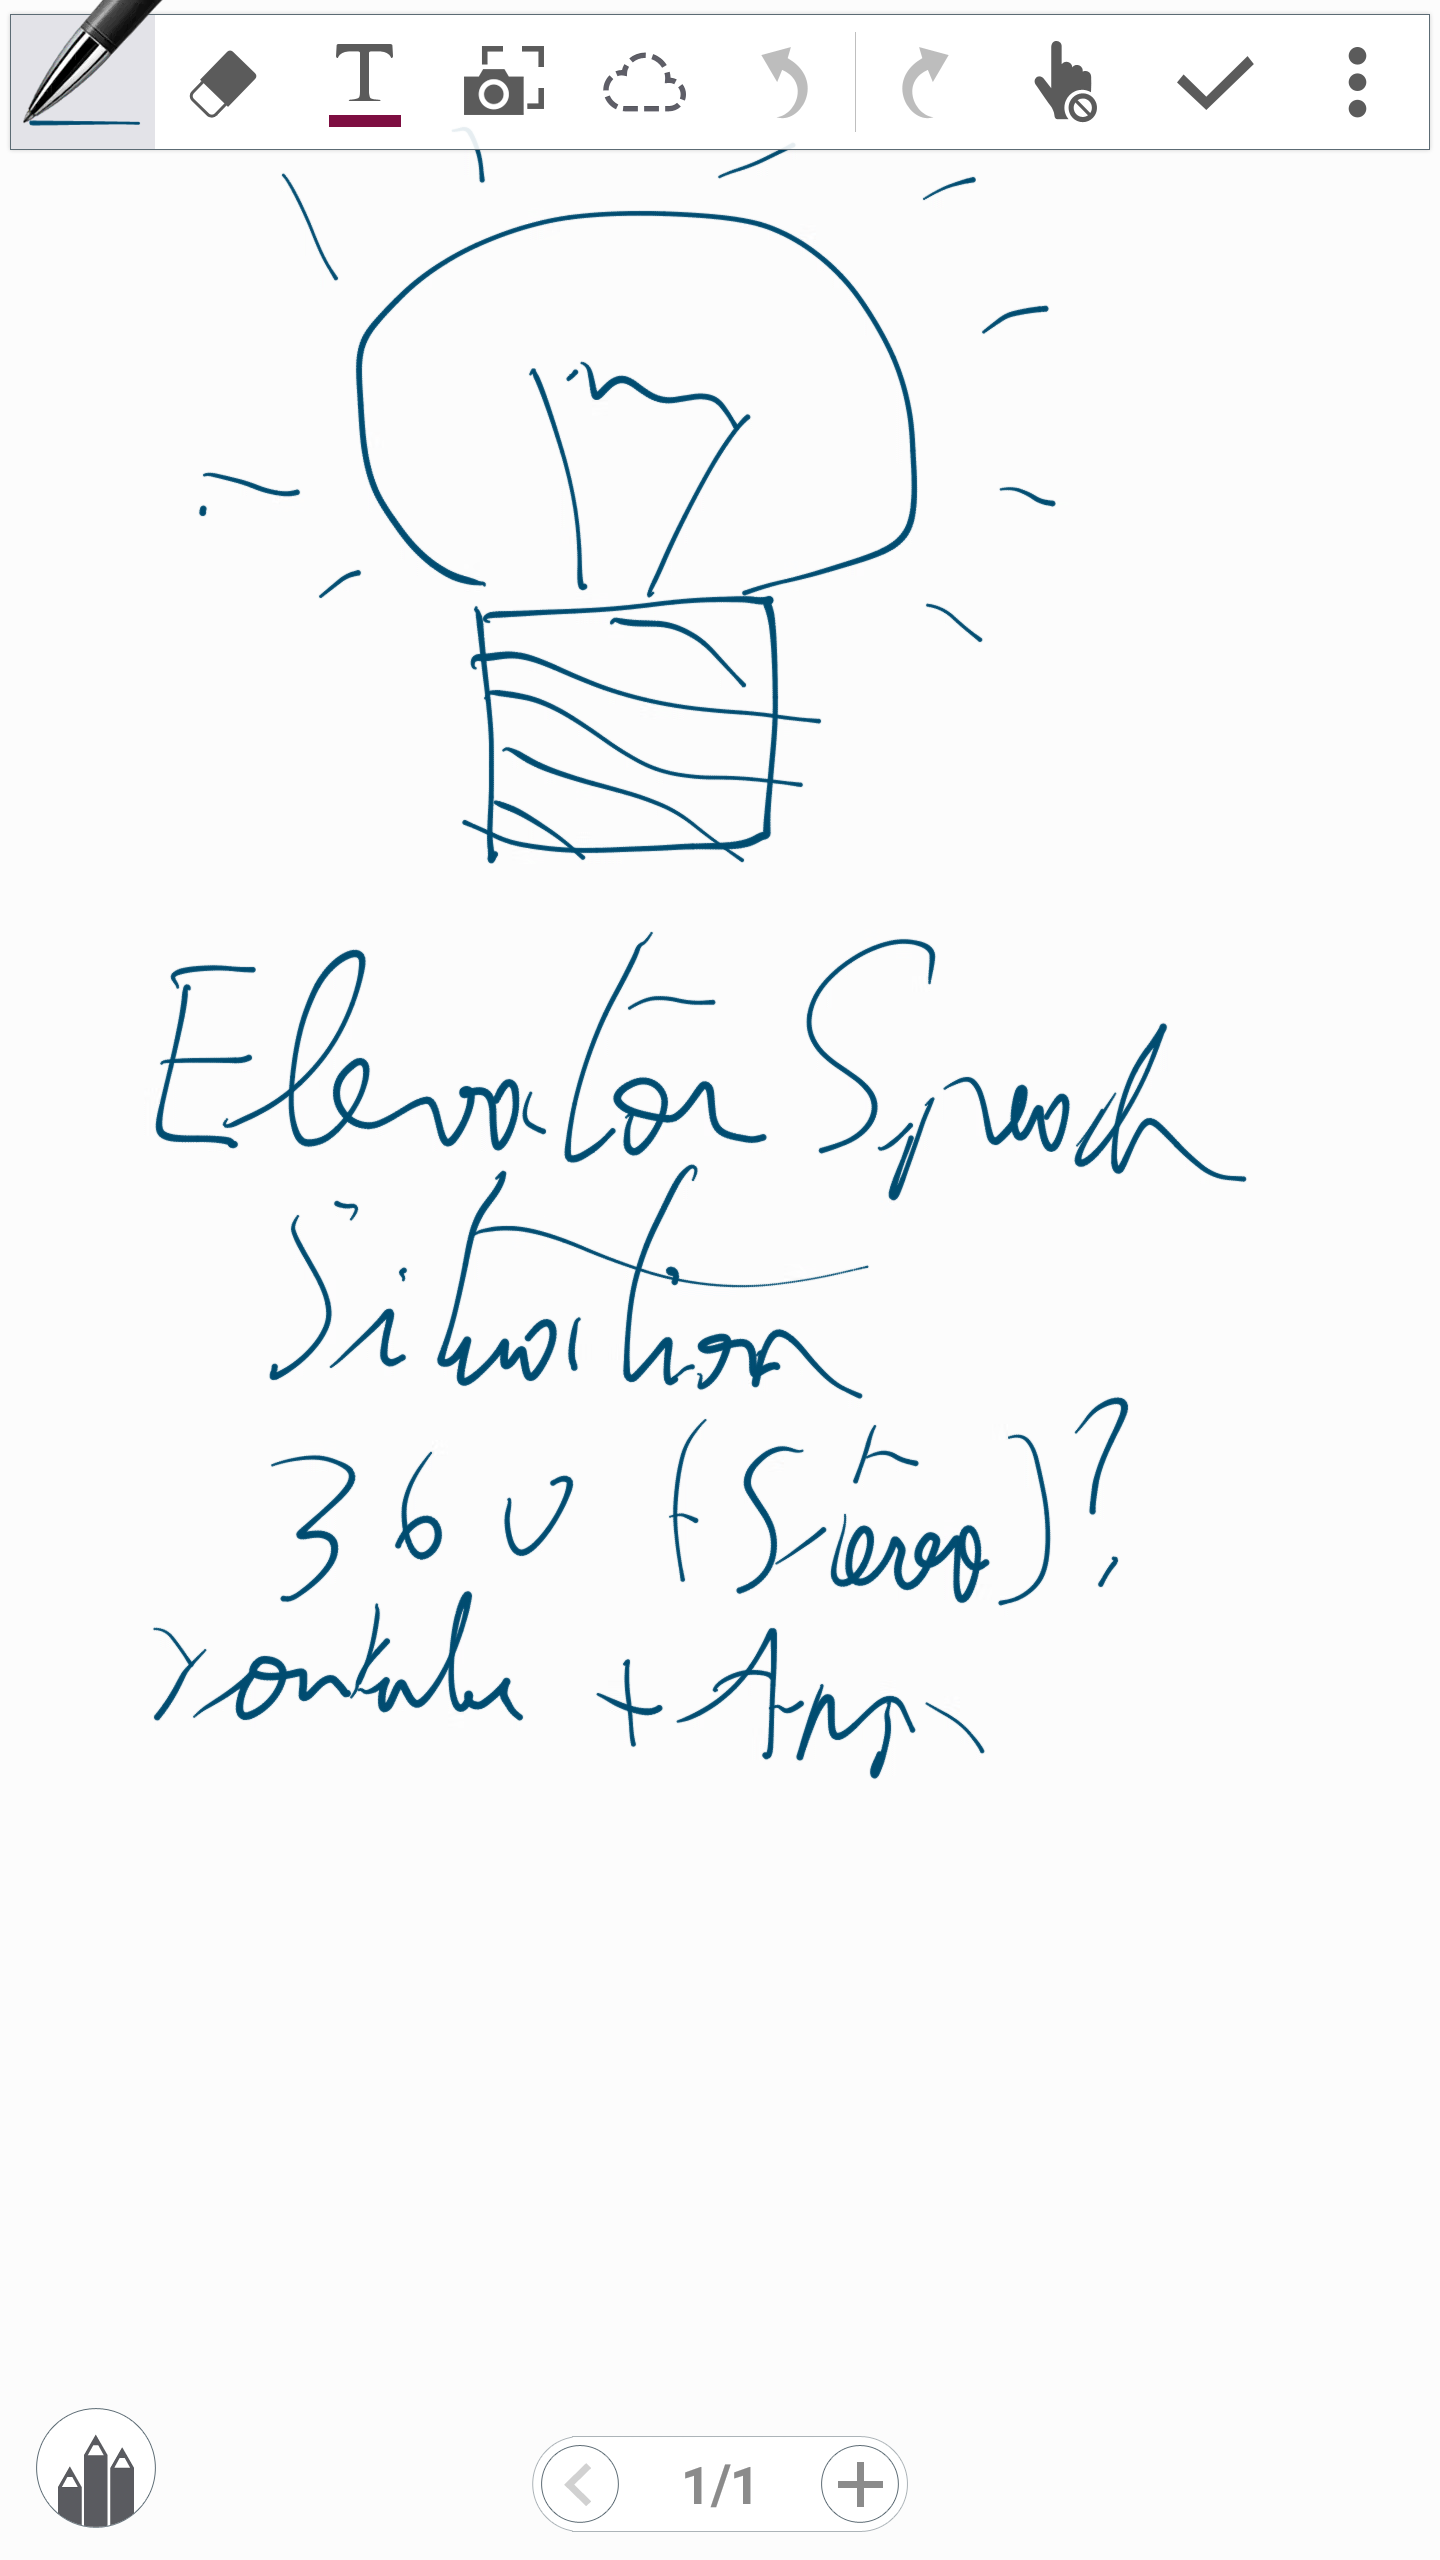 T
Elevator Speech
Situation
360 (Stereo)?
Youtube + App
1/1